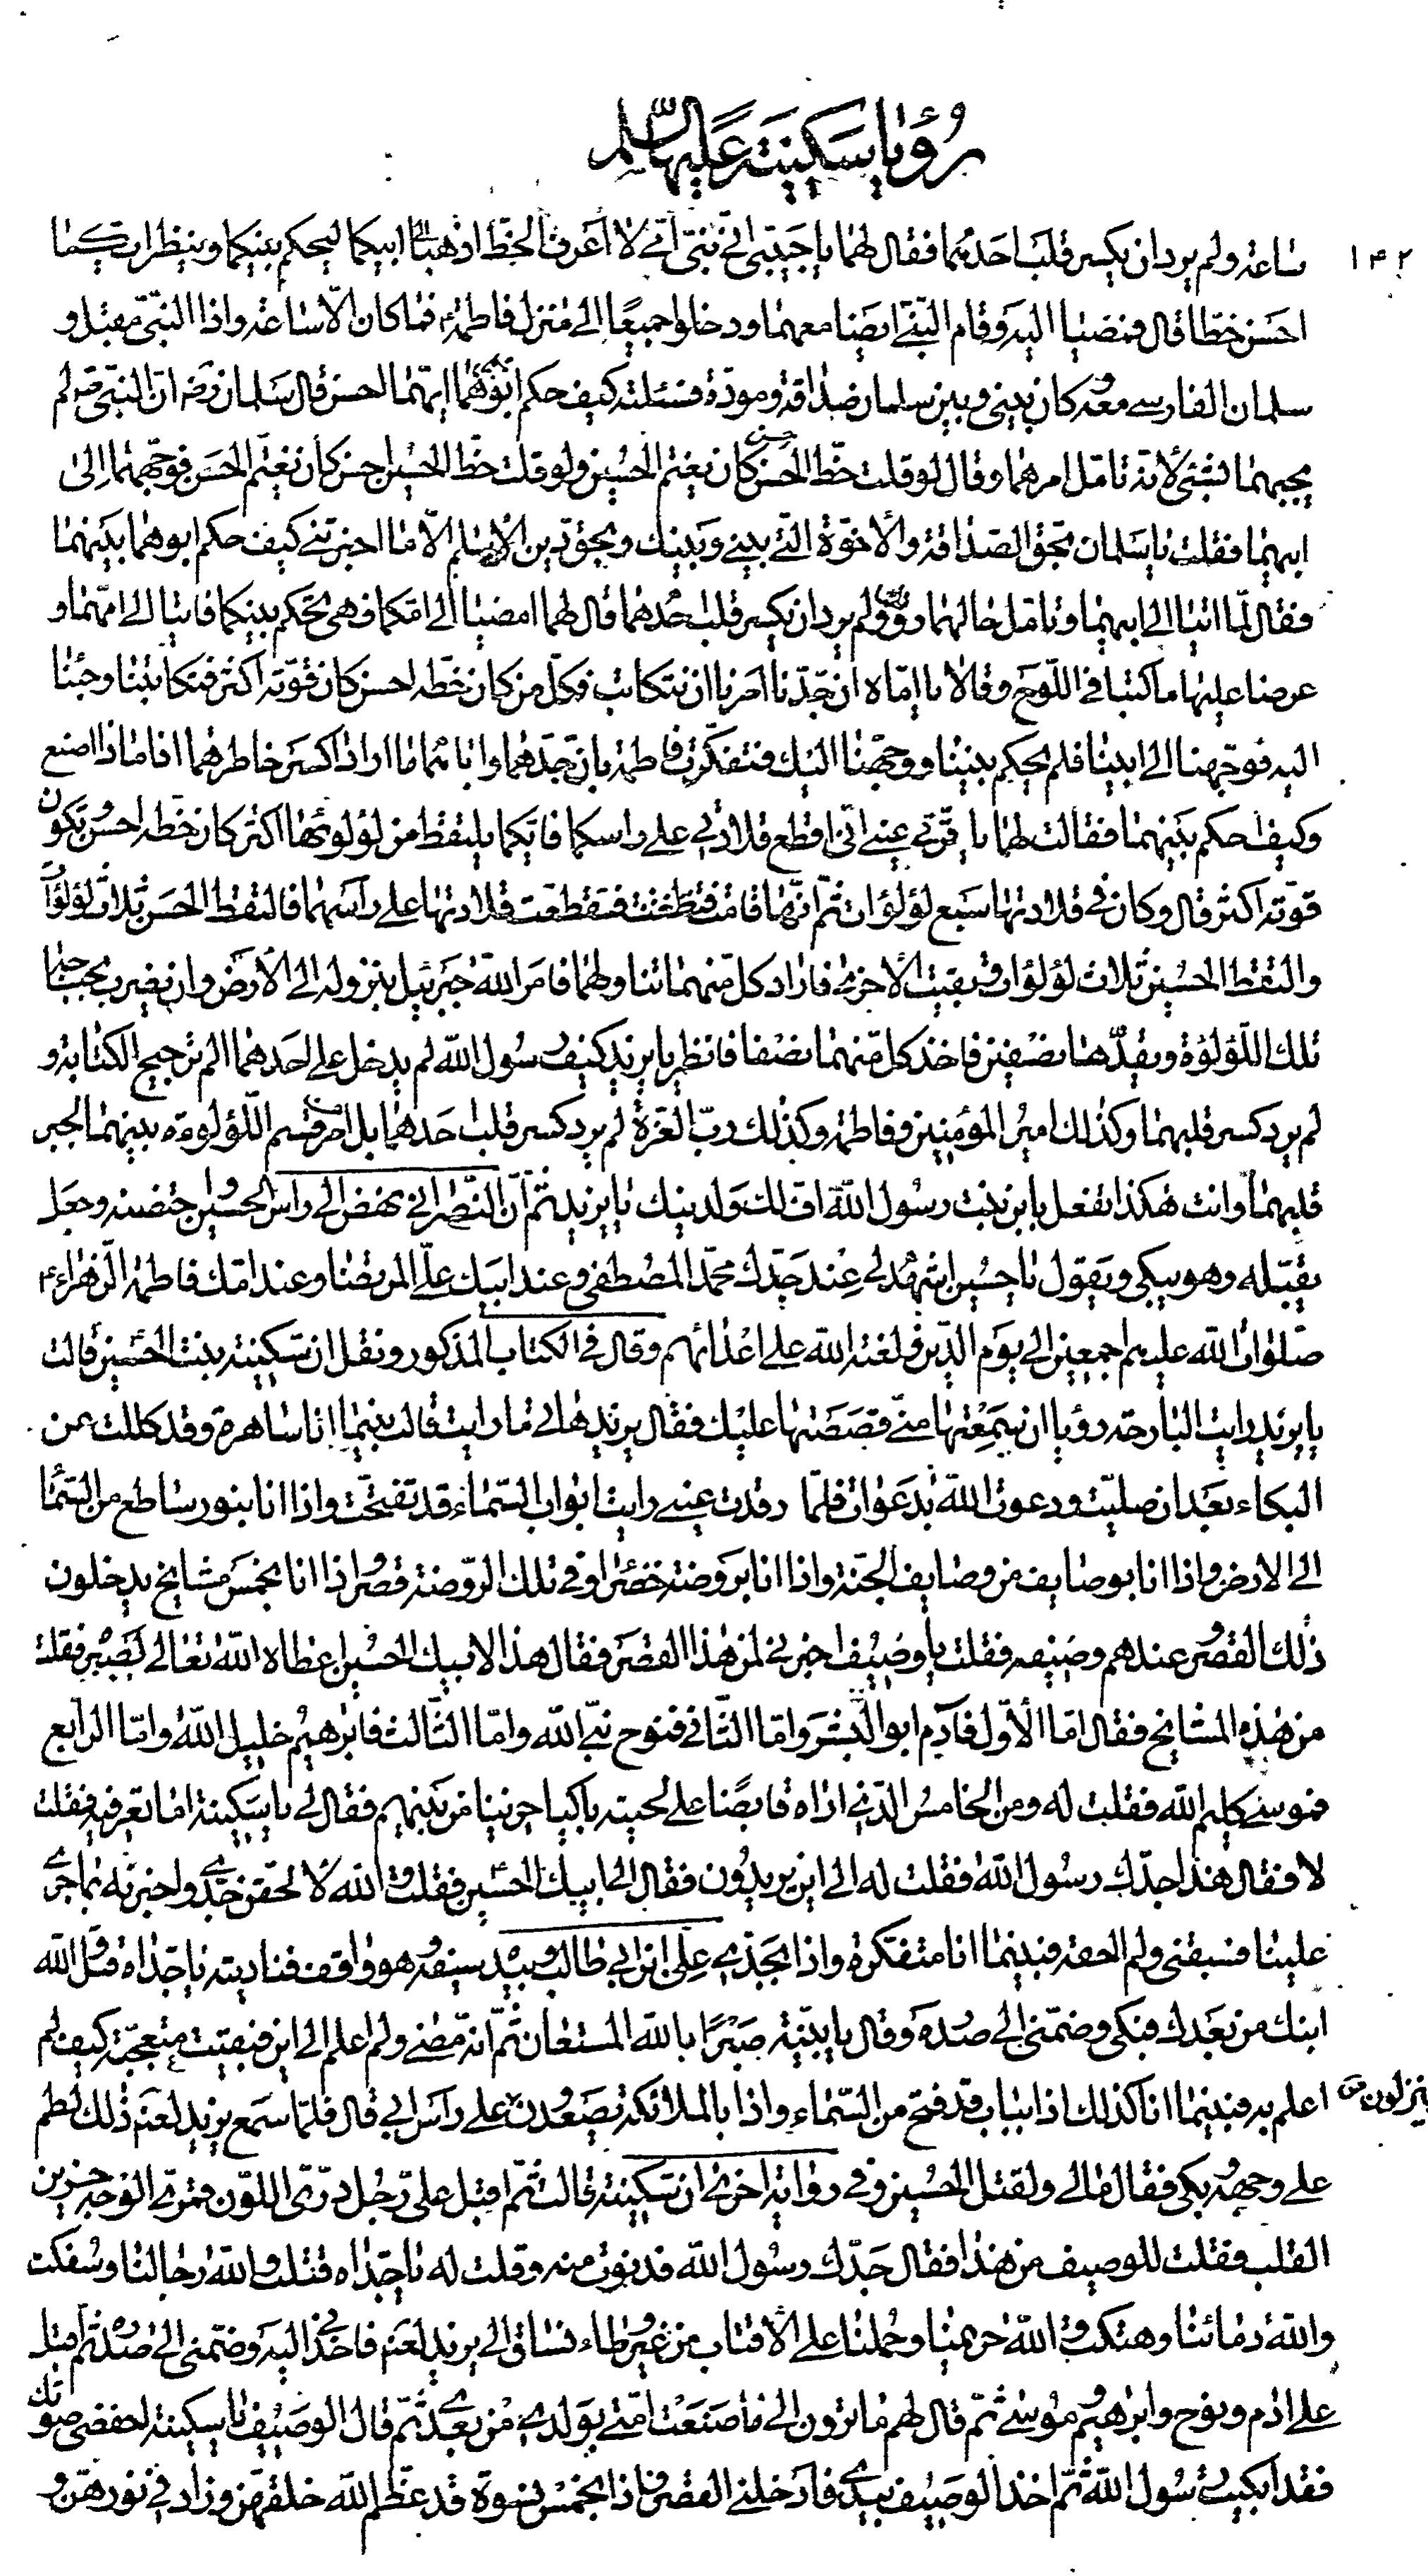 رؤيا سكينة عليها السلم
١٤٢
ساعة ولم يرد ان يكسر قلب احدهما فقال لهما يا حبيبى انى نبى امى لا اعرف الخط اذهبا الى ابيكما ليحكم بينكما وينظر ايكما
احسن خطا قال فمضيا اليه وقام النبى ايضا معهما ودخلوا جميعا الى منزل فاطمة فما كان الا ساعة واذا النبى مقبل و
سلمان الفارسى معه وكان بينى وبين سلمان صداقة ومودة فسئلته كيف حكم ابوهما ايهما احسن قال سلمان رض ان النبى ص لم
يجبهما بشئ لانه تامل امرهما وقال لو قلت خط الحسن احسن كان يغتم الحسين ولو قلت خط الحسين احسن كان يغتم الحسن فوجههما الى
ابيهما فقلت يا سلمان بحق الصداقة والاخوة التى بينى وبينك وبحق دين الاسلم الا ما اخبرتنى كيف حكم ابوهما بينهما
فقال لما اتيا الى ابيهما وتامل حالهما ورق ولم يرد ان يكسر قلب احدهما قال لهما امضيا الى امكما فهى تحكم بينكما فاتيا الى امهما و
عرضا عليها ما كتبا فى اللوح وقالا يا اماه ان جدنا امرنا ان نتكاتب فكل من كان خطه احسن كان قوته اكثر فتكاتبنا وجئنا
اليه فوجهنا الى ابينا فلم يحكم بيننا ووجهنا اليك فتفكرت فاطمة بان جدهما واباهما ما ارادا كسر خاطرهما انا ماذا اصنع
وكيف احكم بينهما فقالت لهما يا قرتى عينى انى اقطع قلادتى على راسكما فايكما يلتقط من لؤلوئها اكثر كان خطه احسن وتكون
قوته اكثر قال وكان فى قلادتها سبع لؤلؤات ثم انها قامت فقطعت قلادتها على راسهما فالتقط الحسن ثلاث لؤلؤات
والتقط الحسين ثلاث لؤلؤات وبقيت الاخرى فاراد كل منهما تناولها فامر الله جبرئيل بنزوله الى الارض وان يضرب بجناحه
تلك اللؤلؤة ويقدها نصفين فاخذ كل منهما نصفا فانظر يا يزيد كيف رسول الله لم يدخل على احدهما الم ترجيح الكتابة و
لم يرد كسر قلبهما وكذلك امير المؤمنين وفاطمة وكذلك رب العزة لم يرد كسر قلب احدهما بل امر من قسم اللؤلوءة بينهما لجبر
قلبهما وانت هكذا تفعل بابن بنت رسول الله اف لك ولدينك يا يزيد ثم ان النصرانى نهض الى راس الحسين واحتضنه وجعل
يقبله وهو يبكى ويقول يا حسين اشهد لى عند جدك محمد المصطفى وعند ابيك على المرتضا وعند امك فاطمة الزهراء ع
صلوات الله عليهم اجمعين الى يوم الدين ولعنة الله على اعدائهم وقال فى الكتاب المذكور ونقل ان سكينة بنت الحسين قالت
يا يزيد رايت البارحة رؤيا ان سمعتها منى قصصتها عليك فقال يزيد هاتى ما رايت قالت بينما انا ساهرة وقد كللت من
البكاء بعد ان صليت ودعوت الله بدعوات فلما رقدت عينى رايت ابواب السماء قد تفتحت واذا انا بنور ساطع من السماء
الى الارض واذا انا بوصايف من وصايف الجنة واذا انا بروضة خضراء وفى تلك الروضة قصر واذا انا بخمس مشايخ يدخلون
ذلك القصر وعندهم وصيف فقلت يا وصيف اخبرنى لمن هذا القصر فقال هذا لابيك الحسين اعطاه الله تعالى لصبره فقلت
من هذه المشايخ فقال اما الاول فآدم ابو البشر واما الثانى فنوح نبى الله واما الثالث فابرهيم خليل الله واما الرابع
فموسى كليم الله فقلت له ومن الخامس الذى اراه قابضا على لحيته باكيا حزينا من بينهم فقال لى يا سكينة اما تعرفيه فقلت
لا فقال هذا جدك رسول الله فقلت له الى اين يريدون فقال الى ابيك الحسين فقلت والله لالحقن جدى واخبرنه بما جرى
علينا فسبقنى ولم الحقه فبينما انا متفكرة واذا بجدى على ابن ابى طالب وبيده سيفه وهو واقف فناديته يا جداه قتل والله
ابنك من بعدك فبكى وضمنى الى صدره وقال يا بنية صبرا بالله المستعان ثم انه مضى ولم اعلم الى اين فبقيت متعجبة كيف لم
اعلم به فبينما انا كذلك اذا بباب قد فتح من السماء واذا بالملائكة يصعدون وينزلون على راس ابى قال فلما سمع يزيد لعنه ذلك لطم
على وجهه وبكى فقال مالى ولقتل الحسين وفى رواية اخرى ان سكينة قالت ثم اقبل على رجل درى اللون قمرى الوجه حزين
القلب فقلت للوصيف من هذا فقال جدك رسول الله فدنوت منه وقلت له يا جداه قتلت والله رجالنا وسفكت
والله دمائنا وهتكت والله حريمنا وحملنا على الاقتاب من غير وطاء نساق الى يزيد لعنه فاخذنى اليه وضمنى الى صدره ثم اقبل
على ادم ونوح وابرهيم وموسى ثم قال لهم ما ترون الى ما صنعت امتى بولدى من بعدى ثم قال الوصيف يا سكينة اخفضى صوتك
فقد ابكيت رسول الله ثم اخذ الوصيف بيدى فادخلنى القصر واذا بخمس نسوة قد عظم الله خلقهن وزاد فى نورهن و